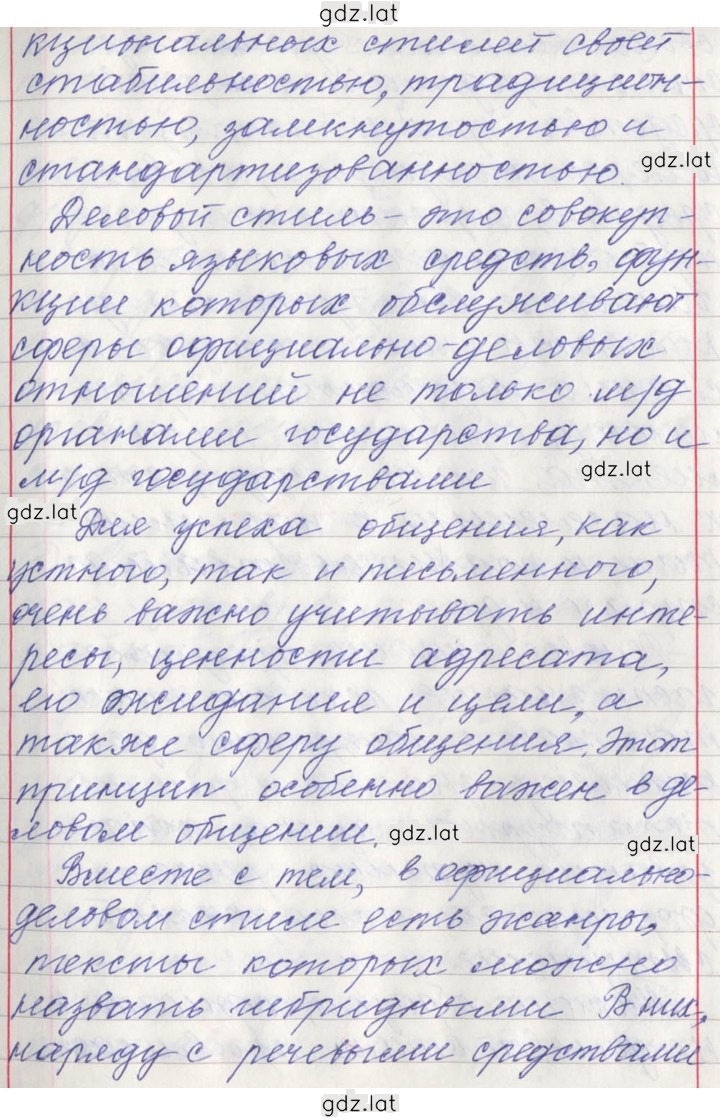 gdz.lat
кциональных стилей своей
стабильностью, традицион-
ностью, замкнутостью и
стандартизованностью.
gdz.lat
Деловой стиль - это совокуп-
ность языковых средств, фун-
кции которых обслуживают
сферы официально-деловых
отношений не только м/д
органами государства, но и
м/д государствами
gdz.lat
gdz.lat
Для успеха общения, как
устного, так и письменного,
очень важно учитывать инте-
ресы, ценности адресата,
его ожидания и цели, а
также сферу общения. Этот
принцип особенно важен в де-
ловом общении.
gdz.lat
gdz.lat
Вместе с тем, в официально-
деловом стиле есть жанры,
тексты которых можно
назвать гибридными В них,
наряду с речевыми средствами
gdz.lat